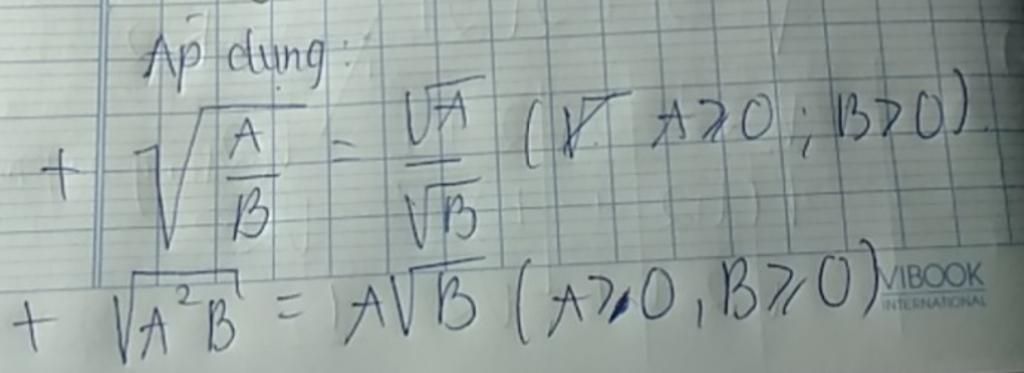 Áp dụng:
+ √(A/B) = √A/√B (√ A ≥ 0; B > 0).
+ √(A²B) = A√B (A ≥ 0, B ≥ 0)
VIBOOK
INTERNATIONAL